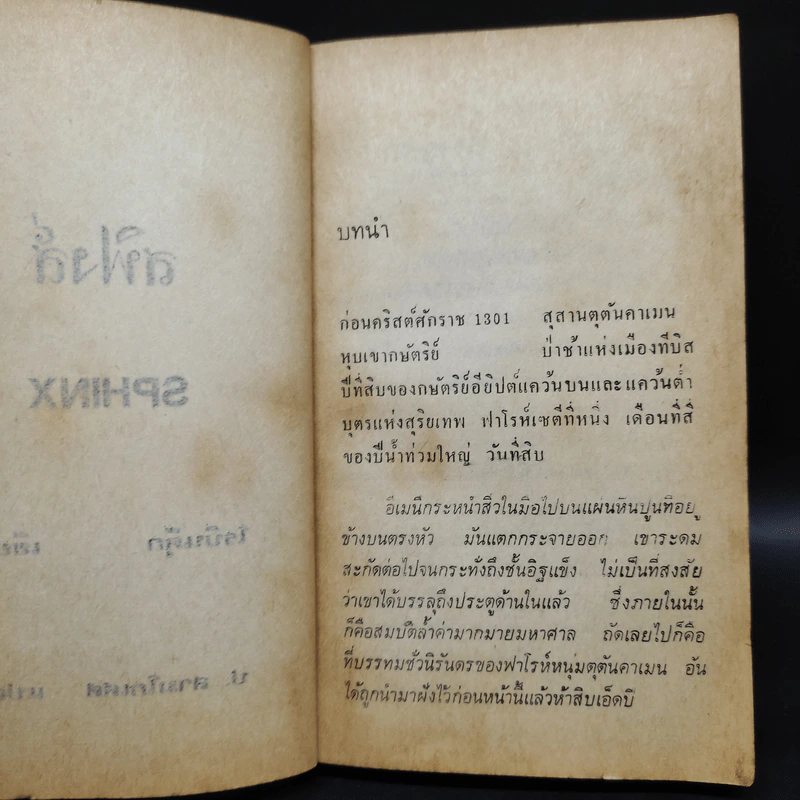 สฟิงส์
SPHINX
โรบินคุ๊ก
ป. สามโกเศศ
บทนำ
ก่อนคริสต์ศักราช 1301 สุสานตุตันคาเมน
หุบเขากษัตริย์ ป่าช้าแห่งเมืองทีบิส
ปีที่สิบของกษัตริย์อียิปต์แคว้นบนและแคว้นต่ำ
บุตรแห่งสุริยเทพ ฟาโรห์เซตีที่หนึ่ง เดือนที่สี่
ของปีน้ำท่วมใหญ่ วันที่สิบ
อีเมนีกระหน่ำสิ่วในมือไปบนแผ่นหินปูนที่อยู่
ข้างบนตรงหัว มันแตกกระจายออก เขาระดม
สะกัดต่อไปจนกระทั่งถึงชั้นอิฐแข็ง ไม่เป็นที่สงสัย
ว่าเขาได้บรรลุถึงประตูด้านในแล้ว ซึ่งภายในนั้น
ก็คือสมบัติล้ำค่ามากมายมหาศาล ถัดเลยไปก็คือ
ที่บรรทมชั่วนิรันดรของฟาโรห์หนุ่มตุตันคาเมน อัน
ได้ถูกนำมาฝังไว้ก่อนหน้านี้แล้วห้าสิบเอ็ดปี